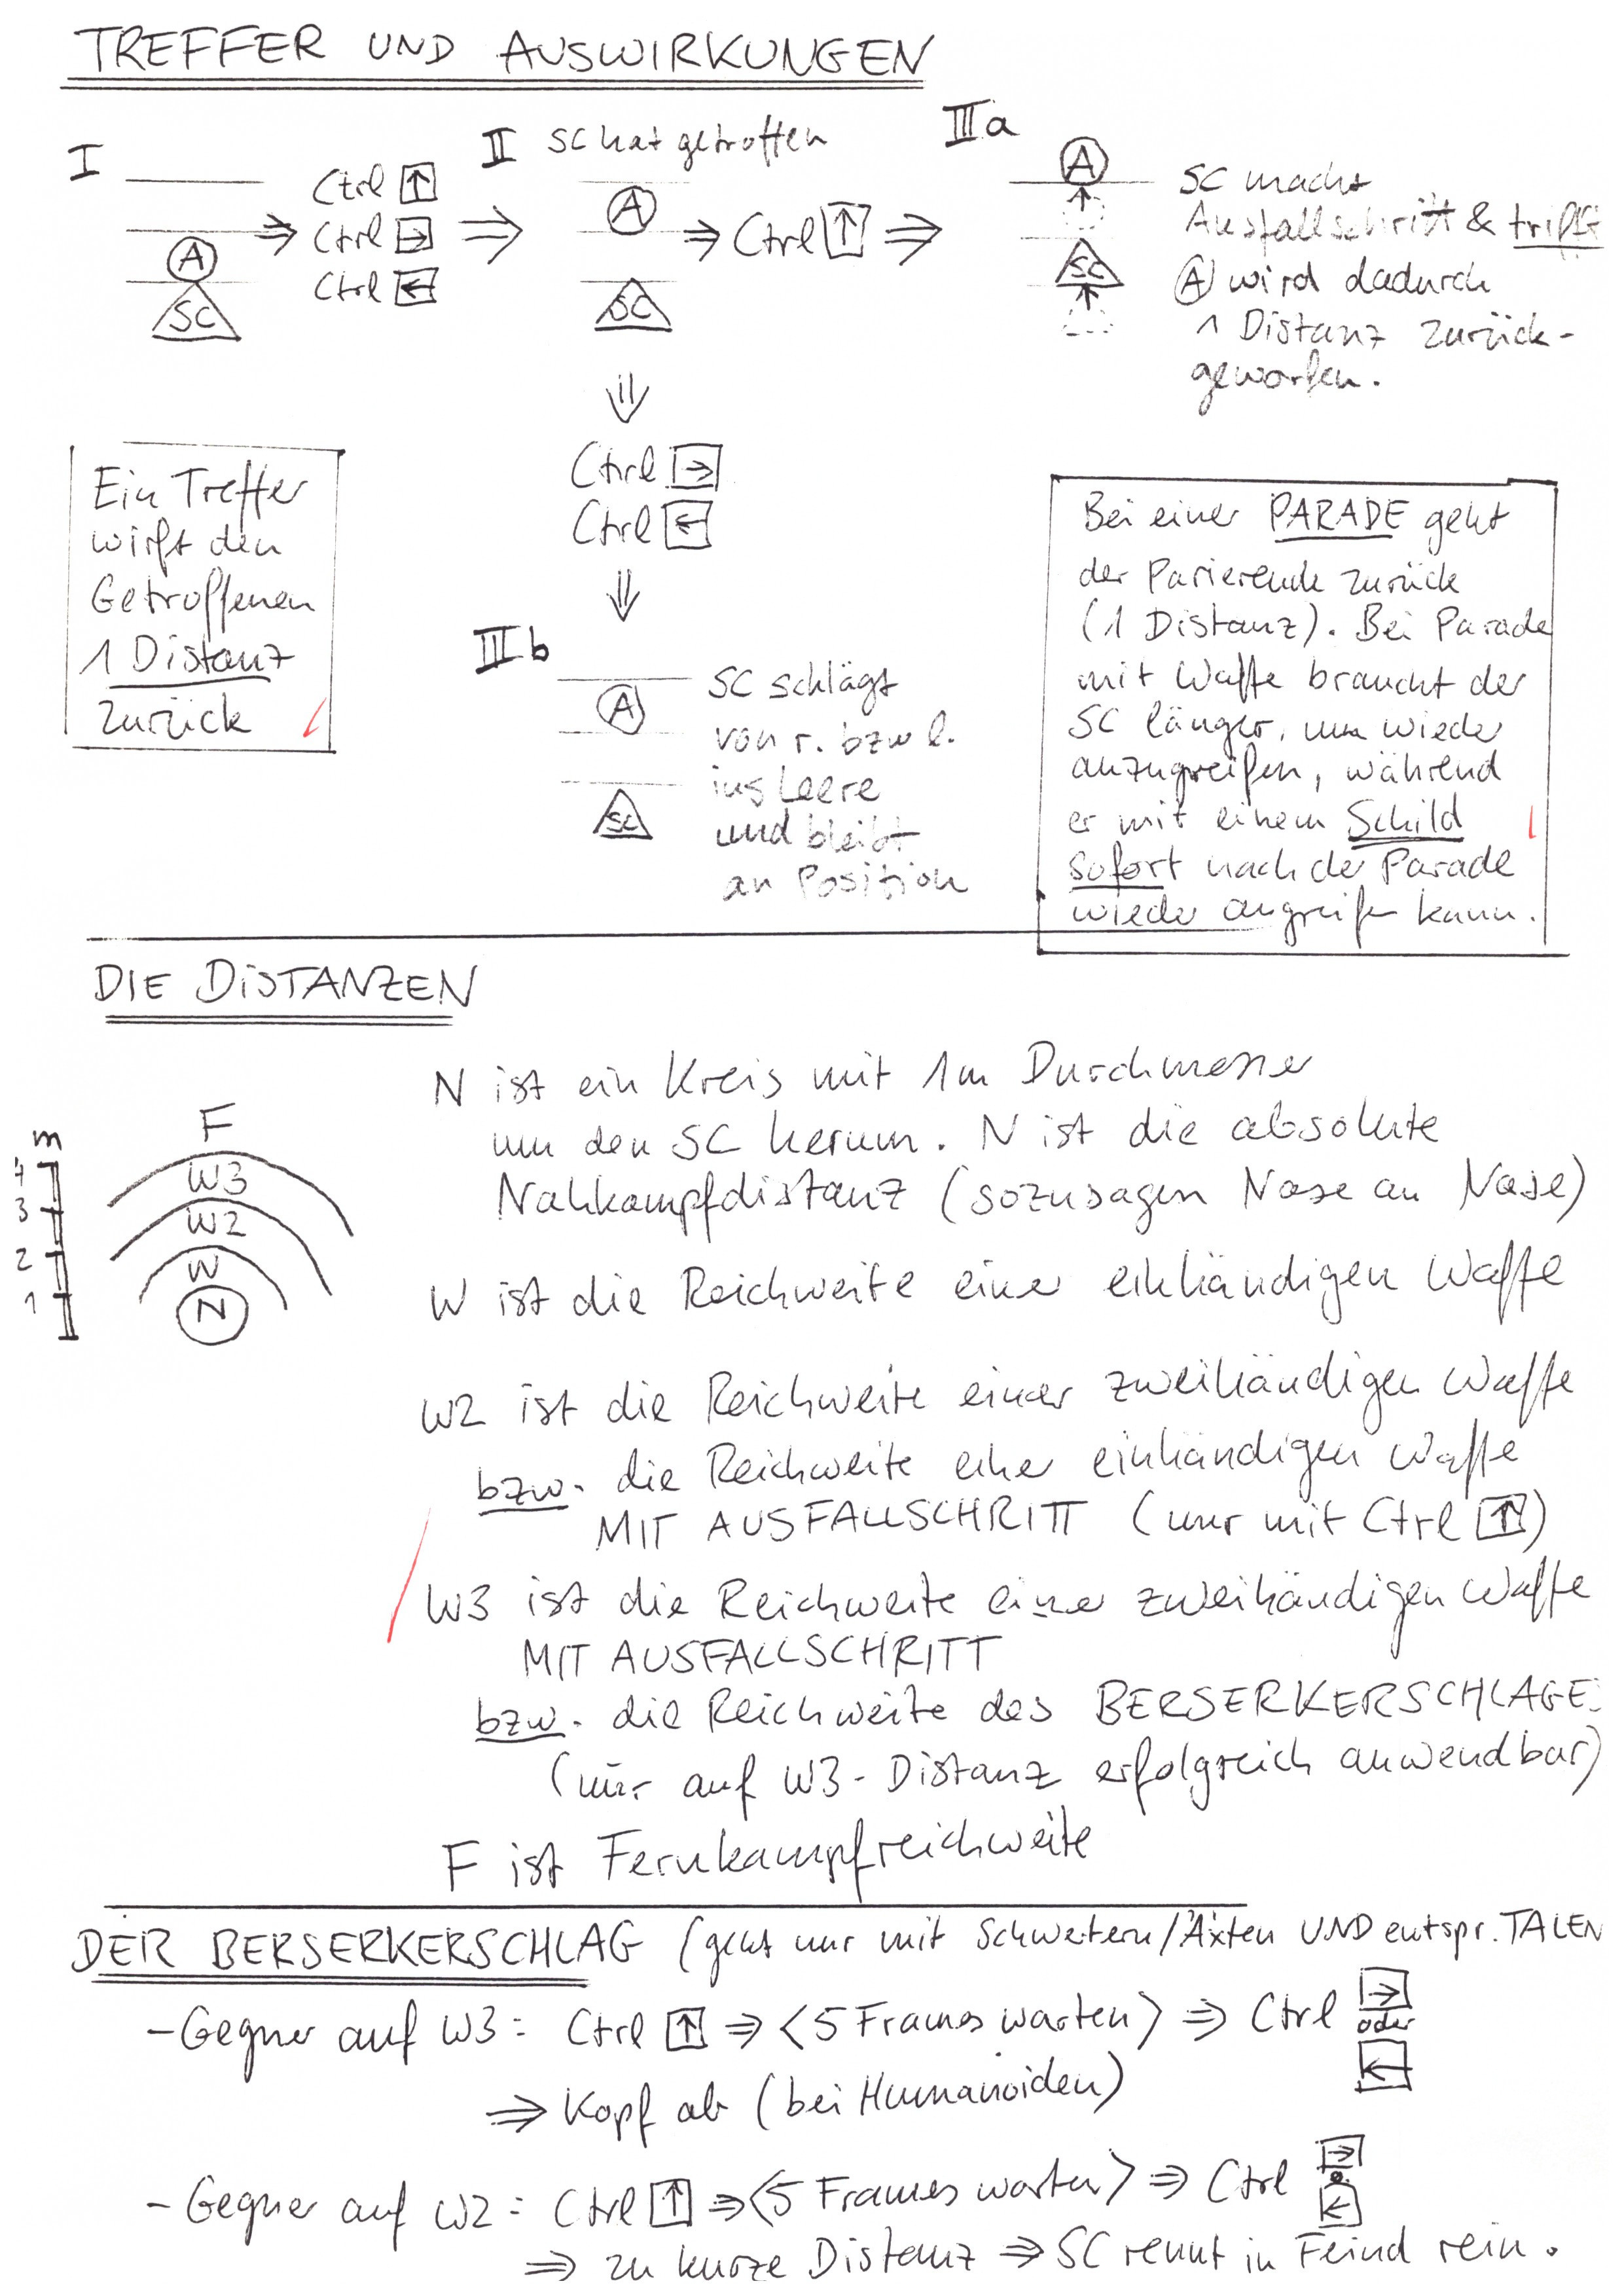 TREFFER UND AUSWIRKUNGEN
I
Ctrl ↑
Ctrl →
Ctrl ←
A
SC
II SC hat getroffen
A
⇒ Ctrl ↑ ⇒
SC
IIIa
A
SC
SC macht
Ausfallschritt & trifft
A wird dadurch
1 Distanz zurück-
geworfen.
Ctrl →
Ctrl ←
Ein Treffer
wirft den
Getroffenen
1 Distanz
zurück
IIIb
A
SC
SC schlägt
von r. bzw l.
ins Leere
und bleibt
an Position
Bei einer PARADE geht
der Parierende zurück
(1 Distanz). Bei Parade
mit Waffe braucht der
SC länger, um wieder
anzugreifen, während
er mit einem Schild
sofort nach der Parade
wieder angreifen kann.
DIE DISTANZEN
m
4
3
2
1
F
W3
W2
W
N
N ist ein Kreis mit 1m Durchmesser
um den SC herum. N ist die absolute
Nahkampfdistanz (sozusagen Nase an Nase)
W ist die Reichweite einer einhändigen Waffe
W2 ist die Reichweite einer zweihändigen Waffe
bzw. die Reichweite einer einhändigen Waffe
MIT AUSFALLSCHRITT (nur mit Ctrl ↑)
W3 ist die Reichweite einer zweihändigen Waffe
MIT AUSFALLSCHRITT
bzw. die Reichweite des BERSERKERSCHLAGE
(nur auf W3-Distanz erfolgreich anwendbar)
F ist Fernkampfreichweite
DER BERSERKERSCHLAG (geht nur mit Schwertern/Äxten UND entspr. TALEN
- Gegner auf W3: Ctrl ↑ ⇒ <5 Frames warten> ⇒ Ctrl → oder ←
⇒ Kopf ab (bei Humanoiden)
- Gegner auf W2: Ctrl ↑ ⇒ <5 Frames warten> ⇒ Ctrl → o. ←
⇒ zu kurze Distanz ⇒ SC rennt in Feind rein.